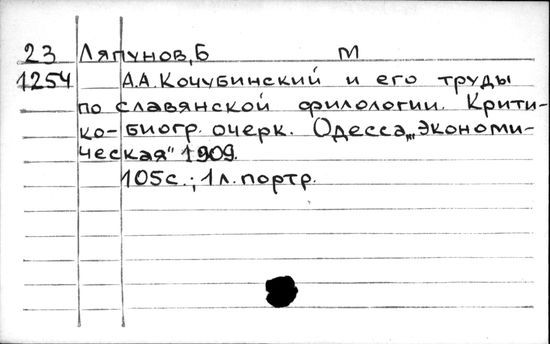 23 Ляпунов, Б М
1254 А.А. Кочубинский и его труды
по славянской филологии. Крити-
ко-биогр. очерк. Одесса, „Экономи-
ческая" 1909.
105с.; 1 л. портр.